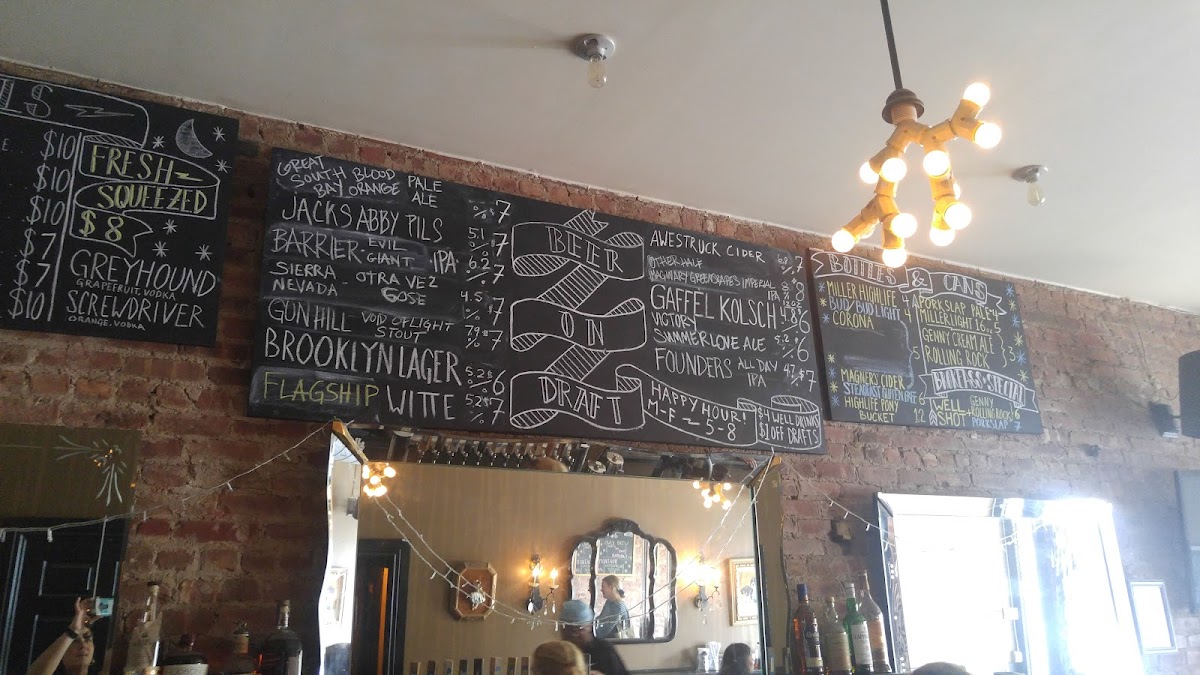 LS
$10
$10
$10
$7
$7
$10
FRESH
SQUEEZED
$8
GREYHOUND
GRAPEFRUIT, VODKA
SCREWDRIVER
ORANGE, VODKA
GREAT SOUTH BAY BLOOD ORANGE PALE ALE 7
JACKS ABBY PILS 5.1% 7
BARRIER- EVIL GIANT IPA 6.2% 7
SIERRA NEVADA- OTRA VEZ GOSE 4.5% 7
GUN HILL VOID OF LIGHT STOUT 7.9% 7
BROOKLYN LAGER 5.2% 6
FLAGSHIP WITTE 5.2% 7
BEER
ON
DRAFT
AWESTRUCK CIDER 6.8% 7
OTHER HALF
IMPERIAL IPA 8
GAFFEL KOLSCH 4.8% 6
VICTORY
SUMMER LOVE ALE 5.2% 6
FOUNDERS ALL DAY IPA 4.7% $7
HAPPY HOUR!
M-F ~ 5-8
$4 WELL DRINKS
$1 OFF DRAFTS
BOTTLES & CANS
MILLER HIGHLIFE 4
BUD LIGHT 4
CORONA
5
MAGNERS CIDER
GLUTEN FREE 6
HIGHLIFE PONY
BUCKET 12
PORKSLAP PALE 4
MILLER LIGHT 16oz 5
GENNY CREAM ALE
ROLLING ROCK 3
SPECIAL
WELL SHOT +
GENNY 6
ROLLING ROCK 6
PORKSLAP 7